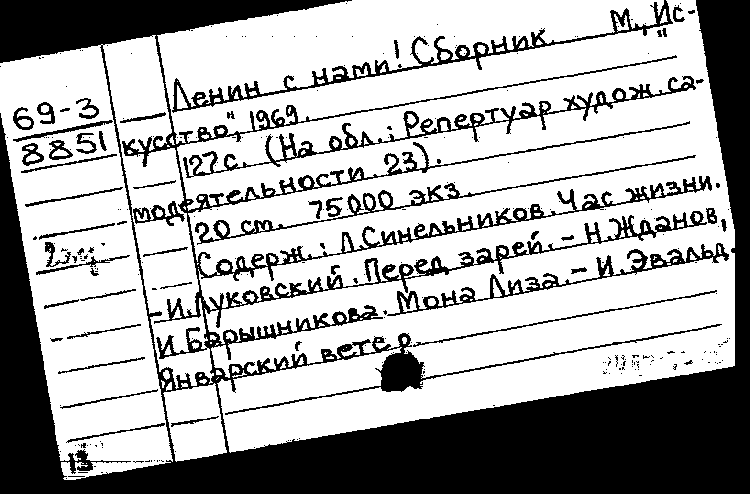 Ленин с нами! Сборник. М., „Ис-
69-3
8851
кусство", 1969.
127с. (На обл.: Репертуар худож. са-
модеятельности. 23).
20 см. 75000 экз.
Содерж.: Л.Синельников. Час жизни.
-И.Луковский. Перед зарей. - Н.Жданов,
И.Барышникова. Мона Лиза. - И.Эвальд.
Январский ветер.
13